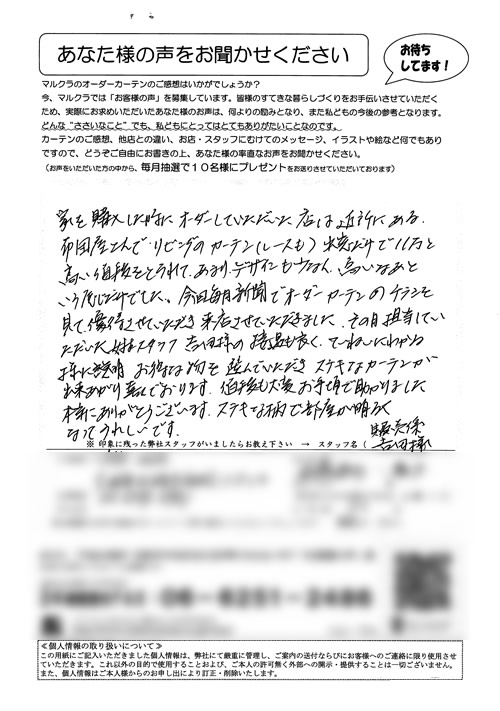 あなた様の声をお聞かせください
お待ち
してます！
マルクラのオーダーカーテンのご感想はいかがでしょうか？
今、マルクラでは「お客様の声」を募集しています。皆様のすてきな暮らしづくりをお手伝いさせていただく
ため、実際にお求めいただいたあなた様のお声は、何よりの励みとなり、また私どもの今後の参考となります。
どんな“ささいなこと”でも、私どもにとってはとてもありがたいことなのです。
カーテンのご感想、他店との違い、お店・スタッフにむけてのメッセージ、イラストや絵など何でもあり
ですので、どうぞご自由にお書きの上、あなた様の率直なお声をお聞かせください。
（お声をいただいた方の中から、毎月抽選で１０名様にプレゼントをお送りさせていただいております）
家を購入した時にオーダーしていただいた店は近所にある、
布団屋さんで、リビングのカーテン(レースも)
高い値段をとられて、あまりデザインも少なく、高いなあと
いう感じだけでした。今回毎日新聞でオーダーカーテンのチラシを
見て、させていただき来店させていただきました。その日担当してい
ただいたスタッフ吉田様の接客も良く、ていねいにわかり
様に説明 お得な物を選んでいただき ステキなカーテンが
出来あがり喜んでおります。値段も大変お手頃で助かりました
本当にありがとうございます。ステキな柄で部屋が明るく
なってうれしいです。
※ 印象に残った弊社スタッフがいましたらお教え下さい → スタッフ名（ 吉田様
≪個人情報の取り扱いについて≫
この用紙にご記入いただきました個人情報は、弊社にて厳重に管理し、ご案内の送付ならびにお客様へのご連絡に限り使用させ
ていただきます。これ以外の目的で使用することおよび、ご本人の許可無く外部への開示・提供することは一切ございません。
また、個人情報はご本人様からのお申し出により訂正・削除いたします。